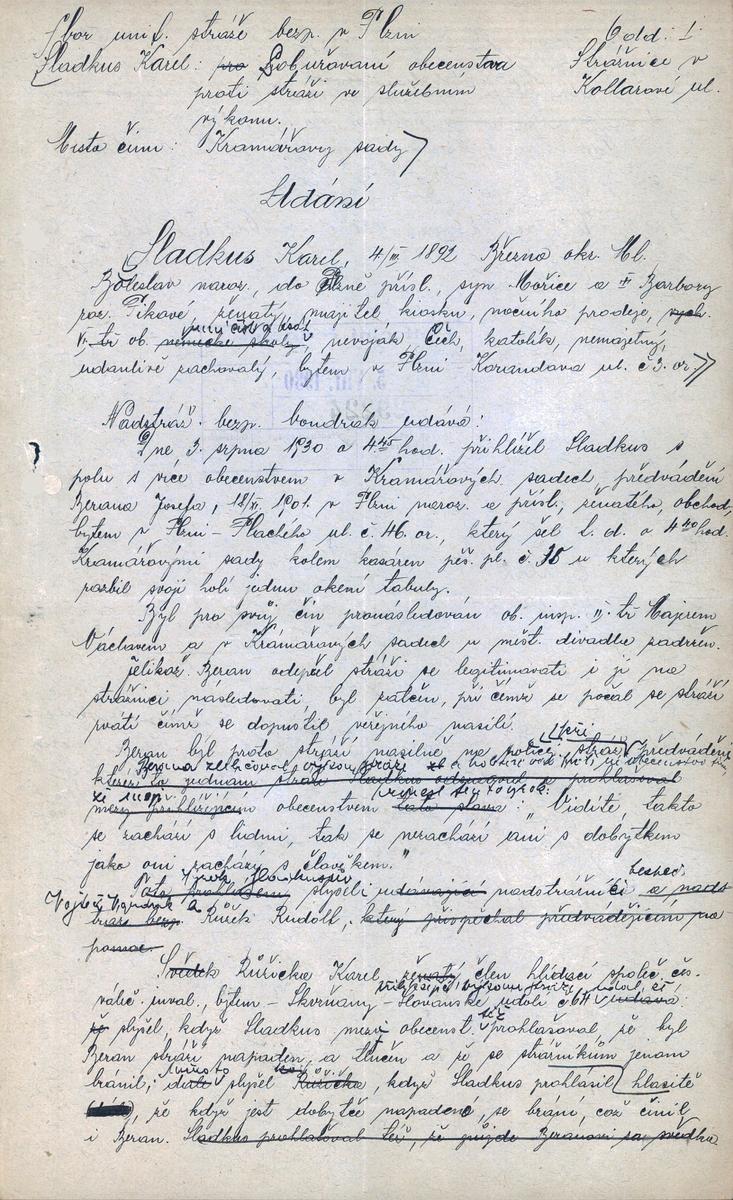 Sbor unif. stráže bezp. v Plzni Odd: I.
Sladkus Karel: pro Pobuřování obecenstva Strážnice v
proti stráži ve služebním Kollárově ul.
výkonu.
Místo činu: Kramářovy sady
Udání
Sladkus Karel, 4/III 1892 Březno okr. Ml.
Boleslav naroz., do Plzně přísl., syn Mořice a Barbory
roz. Pikové, ženatý, majitel kiosku, nočního prodeje,
tř. ob. německé školy, nevoják, Čech, katolík, nemajetný,
udanlivě zachovalý, bytem v Plzni Korandova ul. č 3. or.
Nadstráž. bezp. udává:
Dne 3. srpna 1930 o 4.45 hod. přihlížel Sladkus s
polu s více obecenstvem v Kramářových sadech, předvádění
Berana Josefa, 18/II. 1901. v Plzni naroz. a přísl., ženatého, obchod,
bytem v Plzni - Plachého ul. č. 46. or., který šel t. d. o 4 40 hod.
Kramářovými sady kolem kasáren pěš. pl. č. 35 u kterých
rozbil svojí holí jednu okení tabuly.
Byl pro svůj čin pronásledován ob. insp. II. tř. Majerem
Václavem a v Kramářových sadech u měst. divadla zadržen.
Jelikož Beran odepřel stráži se legitimovati i ji na
strážnici následovati, byl zatčen, při čemž se počal se stráží
rváti čímž se dopustil veřejného násilí.
Beran byl proto stráží násilně na předváděn
Berana zeslačoval výkon stráže
kterézto jednání stráže Sladkus odsuzoval a prohlašoval
mezi přihlížejícím obecenstvem tato slova: „Vidíte, takto
se zachází s lidmi, tak se nezachází ani s dobytkem
jako oni zachází s člověkem.”
Toto prohlášení slyšeli udávající nadstrážníci bezpeč. a nadst
tráže bezp. Růžek Rudolf, který přispěchal předvádějícím na
pomoc.
Svědek Růžička Karel, ženatý člen hlídací společ. čs.
váleč. inval., bytem - Skvrňany - Slovanské údolí č 64 udává:
že slyšel, když Sladkus mezi obecenst. též prohlašoval, že byl
Beran stráží napaden a tlučen a že se strážníkům jenom
bránil, dále slyšel Růžička, když Sladkus prohlásil hlasitě
, že když jest dobytče napadené, se brání, což činil
i Beran. Sladkus prohlašoval též, že půjde Beranovi za svědka.